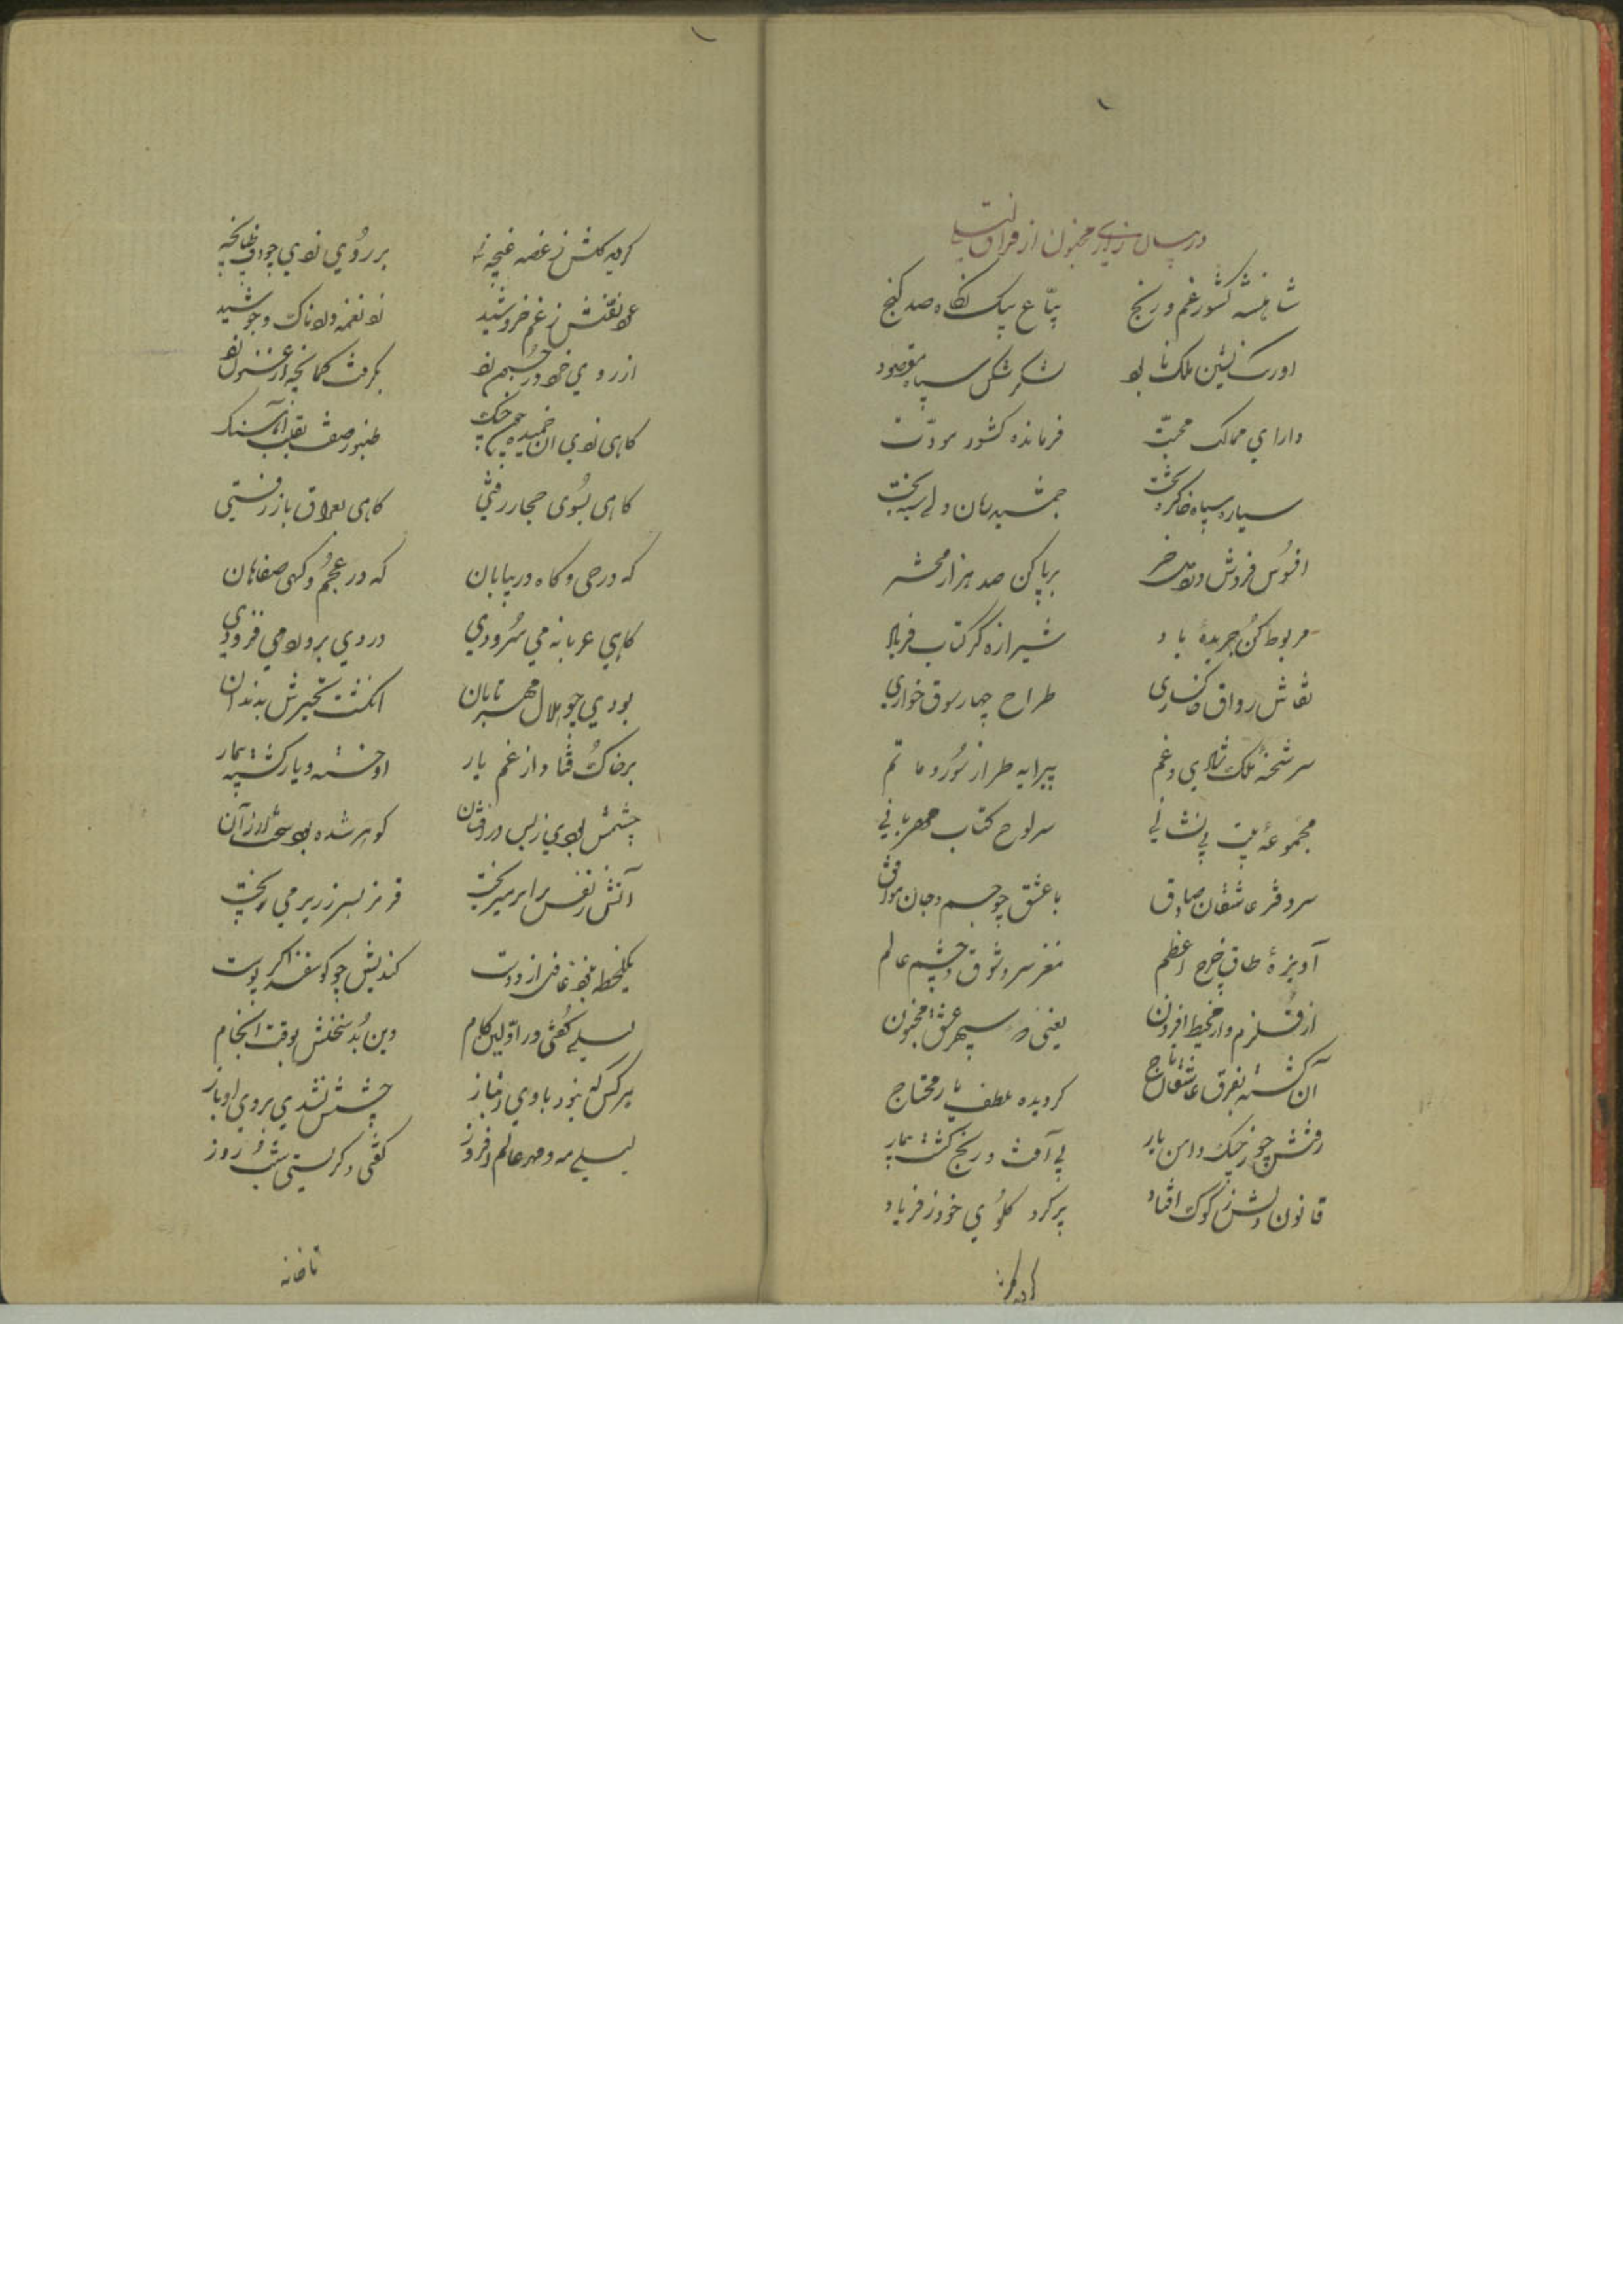 در بیان زاری مجنون از فراق لیلی
شاهنشه کشور غم و رنج بیّاع بیک نگاه صد گنج
اورنک نشین ملک نابود لشکر شکن سپاه مقصود
دارای ممالک محبّت فرمانده کشور مودّت
سیاره سپاه خاک بر تخت جمشید زمان ولی سیه بخت
افسوس فروش درد میخر برپا کن صد هزار محشر
مربوط کن جریدهٔ یاد شیرازه گر کتاب فریاد
نقاش رواق خاکساری طراح چهار سوق خواری
سر شحنهٔ ملک شادی و غم پیرایه طراز سور و ماتم
مجموعهٔ بیت بی نشانی سر لوح کتاب مهربانی
سر دفتر عاشقان صادق با عشق چو جسم و جان موافق
آویزهٔ طاق چرخ اعظم مغز سر و شوق و چشم عالم
از قلزم و از محیط افزون یعنی سپهر عشق مجنون
آن گشته بفرق عاشقان تاج گردیده بلطف یار محتاج
رفتش چو ز چنک دامن یار بی آفت و رنج گشت بیمار
قانون دلش ز کوک افتاد پر کرد گلوی خود ز فریاد
گردید گلش ز غصه غنچه بر روی زدی چو دف طپانچه
عود نفسش ز غم خروشید زد نغمه دردناک و جوشید
از روی خود و ز جسم زد بگرفت کمانچه
گاهی زدی آن خمیده چون چنک طنبور صفت بقلب
گاهی بسوی حجاز رفتی گاهی بعراق باز رفتی
که در حی و گاه در بیابان که در عجم و گهی صفاهان
گاهی عربانه می سرودی دردی بر درد می فزودی
بودی چو هلال مهر تابان انگشت تحیرش بدندان
بر خاک فتاد از غم یار او خسته و یار گشت بیمار
چشمش بودی ز بس در افشان گوهر شده بود سخت ارزان
آتش ز نفس برابر میریخت قرمز بسر زریر می ریخت
یکلحظه نبود غافل از دوست کندیش چو گوسفند اگر پوست
لیلی گفتی در اوّلین کلام وین بُد سخنش بوقت انجام
هر کس که نبود با وی دمساز چشمش نشدی بروی او باز
لیلی مه و مهر عالم افروز گفتی و گریستی شب و روز